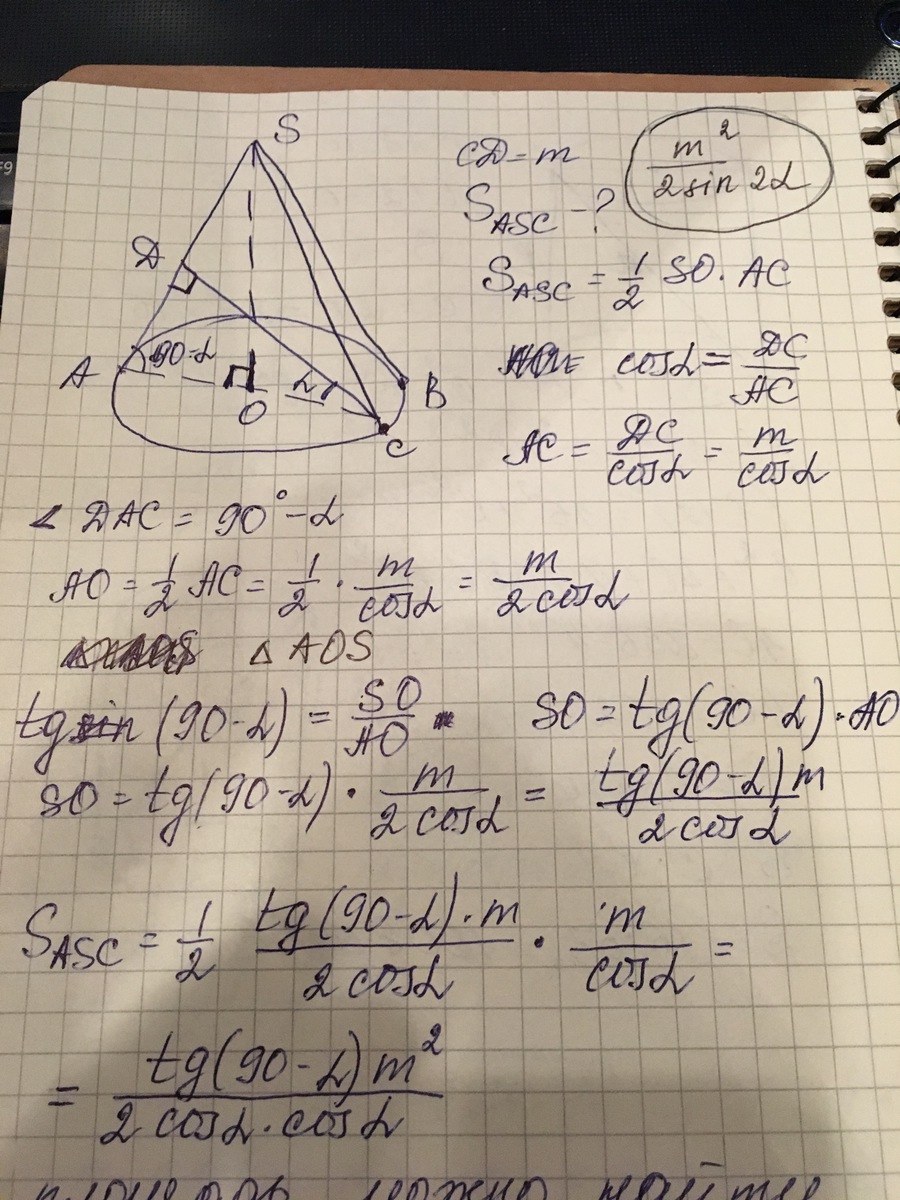 F9
S
CD = m
m² / 2 sin 2α
S_ASC - ?
D
S_ASC = 1/2 SO · AC
90-α
cos α = DC / AC
A
α
B
O
C
AC = DC / cos α = m / cos α
∠ DAC = 90° - α
AO = 1/2 AC = 1/2 · m / cos α = m / 2 cos α
△ AOS
tg (90-α) = SO / AO
SO = tg(90-α) · AO
SO = tg(90-α) · m / 2 cos α = tg(90-α) m / 2 cos α
S_ASC = 1/2 tg(90-α) · m / 2 cos α · m / cos α =
= tg(90-α) m² / 2 cos α · cos α
можно найти